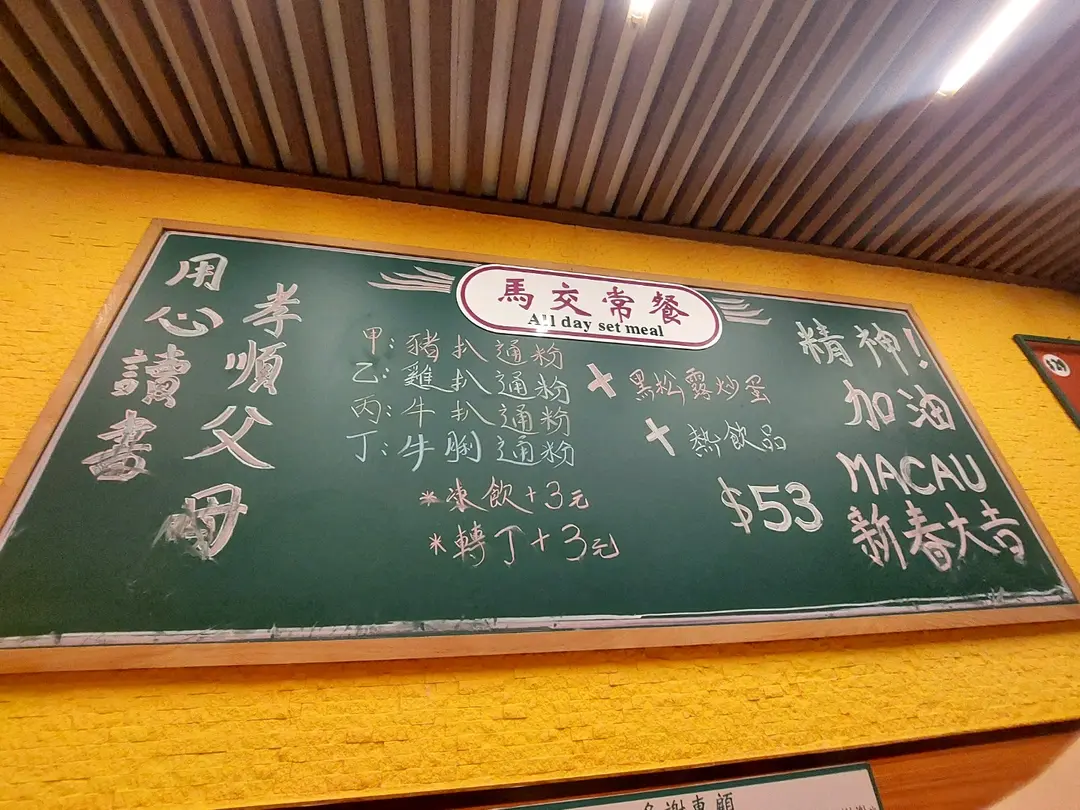 孝順父母
用心讀書
馬交常餐
All day set meal
甲:豬扒通粉
乙:雞扒通粉
丙:牛扒通粉
丁:牛脷通粉
+黑松露炒蛋
+熱飲品
*凍飲+3元
*轉丁+3元
$53
精神!
加油
MACAU
新春大吉
多謝惠顧